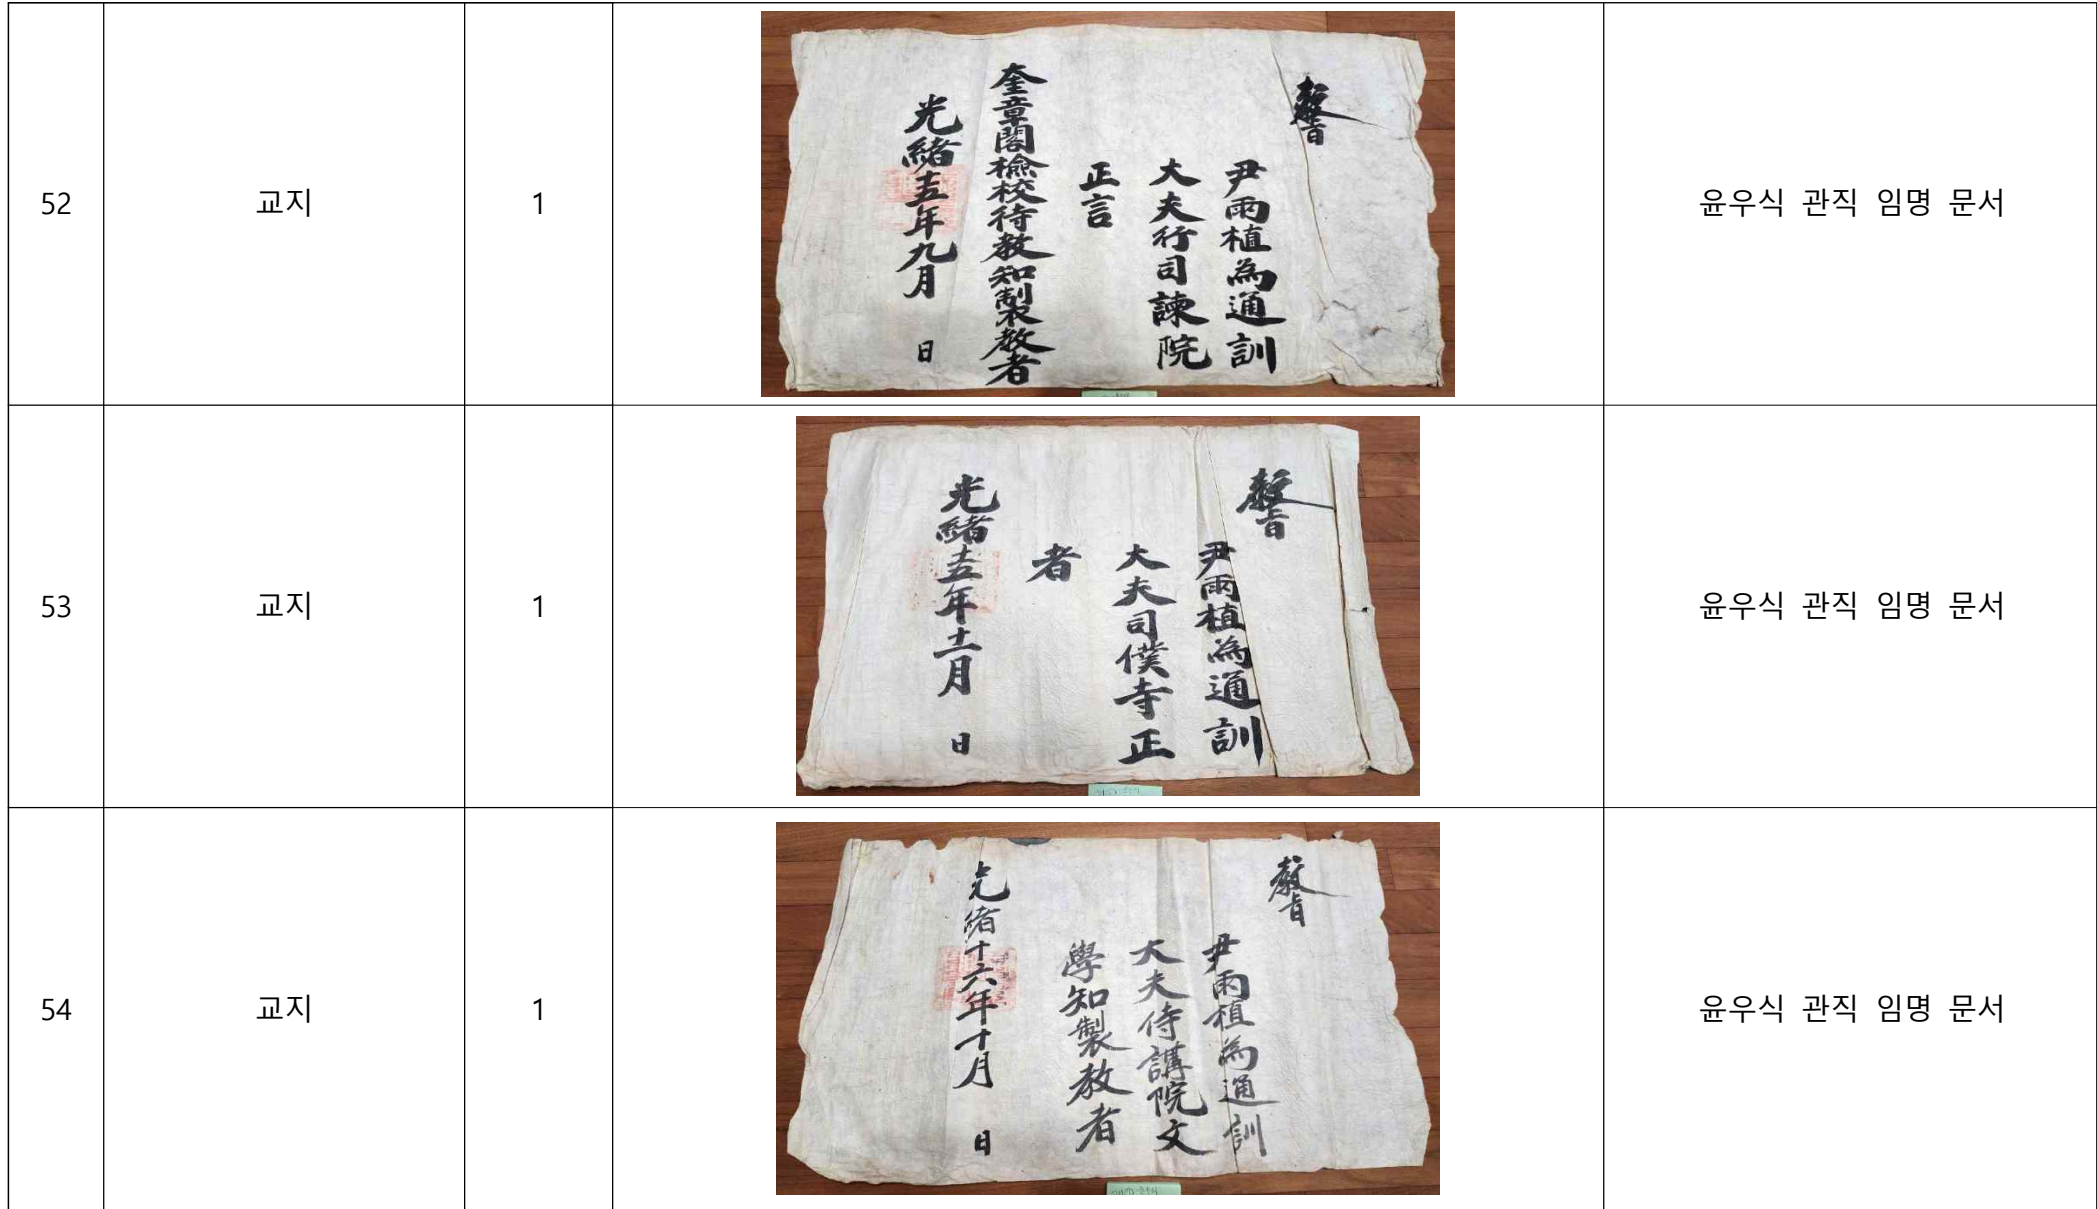 52
교지
1
敎旨
尹雨植為通訓
大夫行司諫院
正言
奎章閣檢校待教知製教者
光緖十五年九月 日
윤우식 관직 임명 문서
53
교지
1
敎旨
尹雨植為通訓
大夫司僕寺正
者
光緖十五年十二月 日
윤우식 관직 임명 문서
54
교지
1
敎旨
尹雨植為通訓
大夫侍講院文
學知製教者
光緖十六年十月 日
윤우식 관직 임명 문서